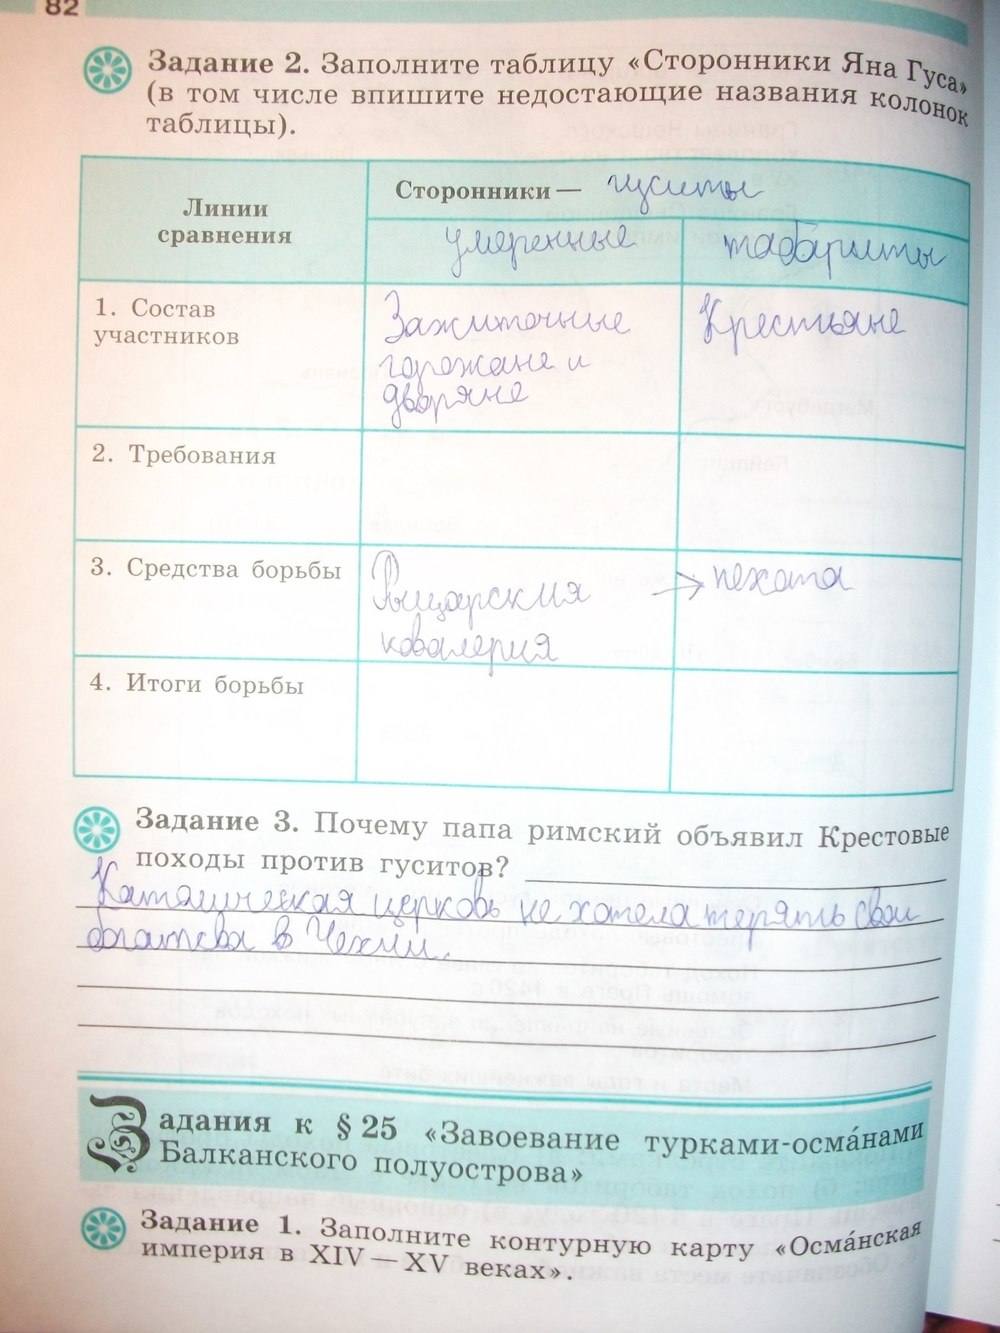 82
Задание 2. Заполните таблицу «Сторонники Яна Гуса»
(в том числе впишите недостающие названия колонок
таблицы).
Линии
сравнения
Сторонники — гуситы
умеренные
табориты
1. Состав
участников
Зажиточные
горожане и
дворяне
Крестьяне
2. Требования
3. Средства борьбы
Рыцарския
ковалерия
→ пехота
4. Итоги борьбы
Задание 3. Почему папа римский объявил Крестовые
походы против гуситов?
Католическая церковь не хотела терять свои
богатсва в Чехии.
Задания к § 25 «Завоевание турками-осмáнами
Балканского полуострова»
Задание 1. Заполните контурную карту «Осмáнская
империя в XIV – XV веках».